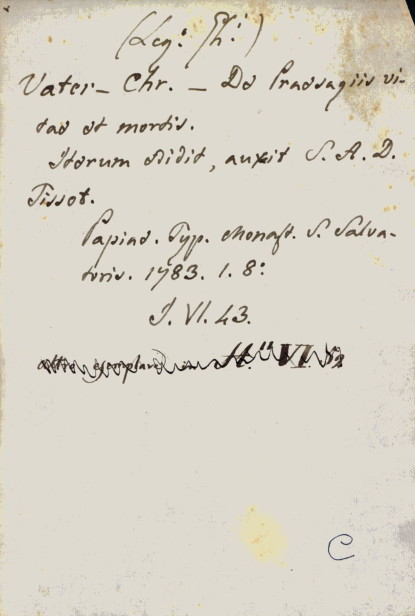 (Leg: Ph:)
Vater - Chr. - De Praesagiis vi-
tae et mortis.
Iterum edidit, auxit S. A. D.
Tissot.
Papiae. Typ. Monast. S. Salva-
toris. 1783. 1. 8:
J. VI. 43.
altro esemplare in H. VI. 52
C